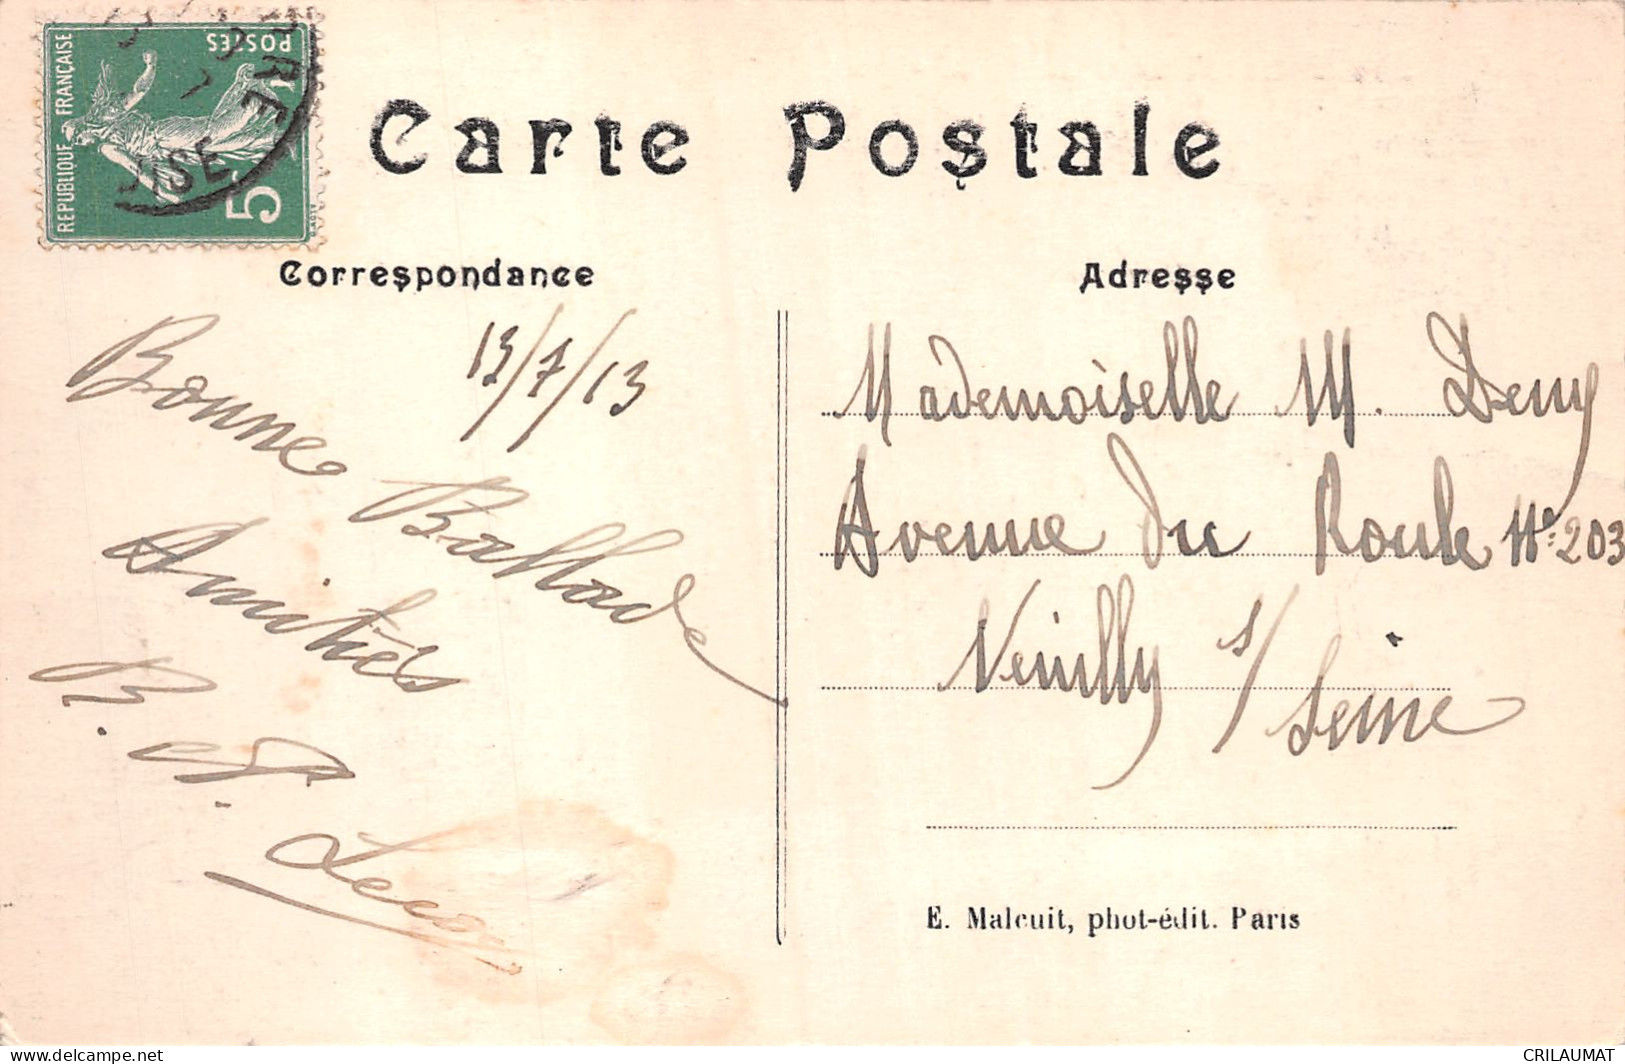 REPUBLIQUE FRANÇAISE
POSTES
5
OISE
Carte Postale
Correspondance
Adresse
13/7/13
Bonne Ballade
Amitiés
B. et P.
Mademoiselle M. Demy
Avenue du Roule N° 203
Neuilly s/ Seine
E. Malcuit, phot-édit. Paris
CRILAUMAT